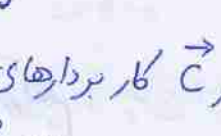 c⃗ کار بردارهای